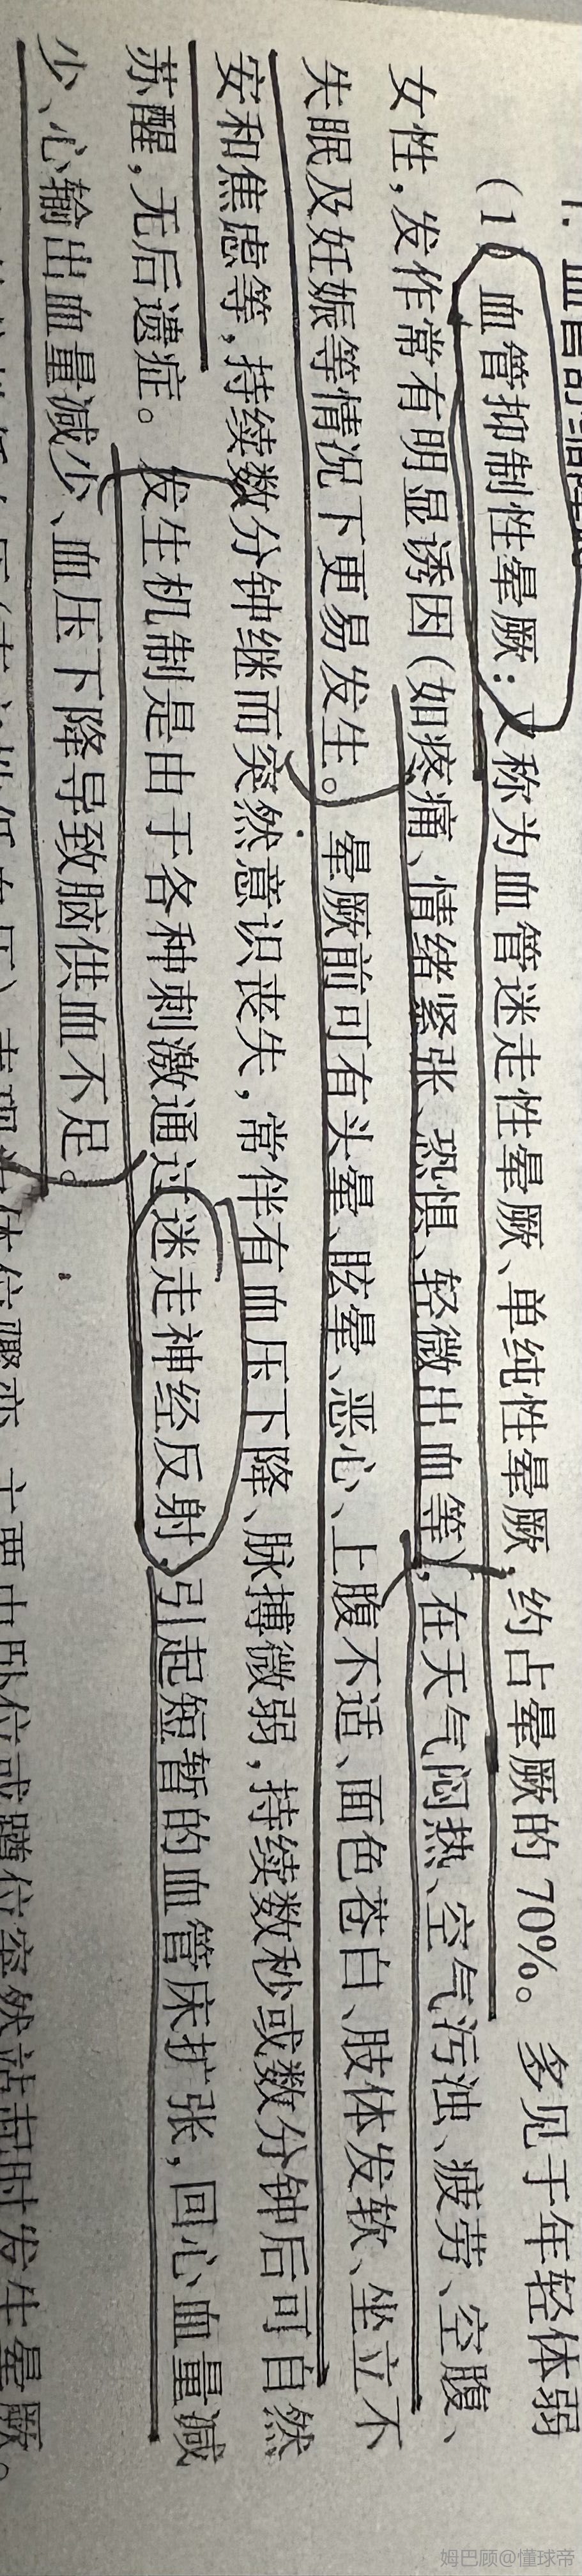 1. 血管舒缩障碍
（1）血管抑制性晕厥：又称为血管迷走性晕厥、单纯性晕厥，约占晕厥的 70%。多见于年轻体弱
女性，发作常有明显诱因（如疼痛、情绪紧张、恐惧、轻微出血等），在天气闷热、空气污浊、疲劳、空腹、
失眠及妊娠等情况下更易发生。晕厥前可有头晕、眩晕、恶心、上腹不适、面色苍白、肢体发软、坐立不
安和焦虑等，持续数分钟继而突然意识丧失，常伴有血压下降、脉搏微弱，持续数秒或数分钟后可自然
苏醒，无后遗症。发生机制是由于各种刺激通过迷走神经反射，引起短暂的血管床扩张，回心血量减
少、心输出血量减少、血压下降导致脑供血不足。
表现为体位骤变，主要由卧位或蹲位突然站起时发生晕厥。
姆巴顾@懂球帝